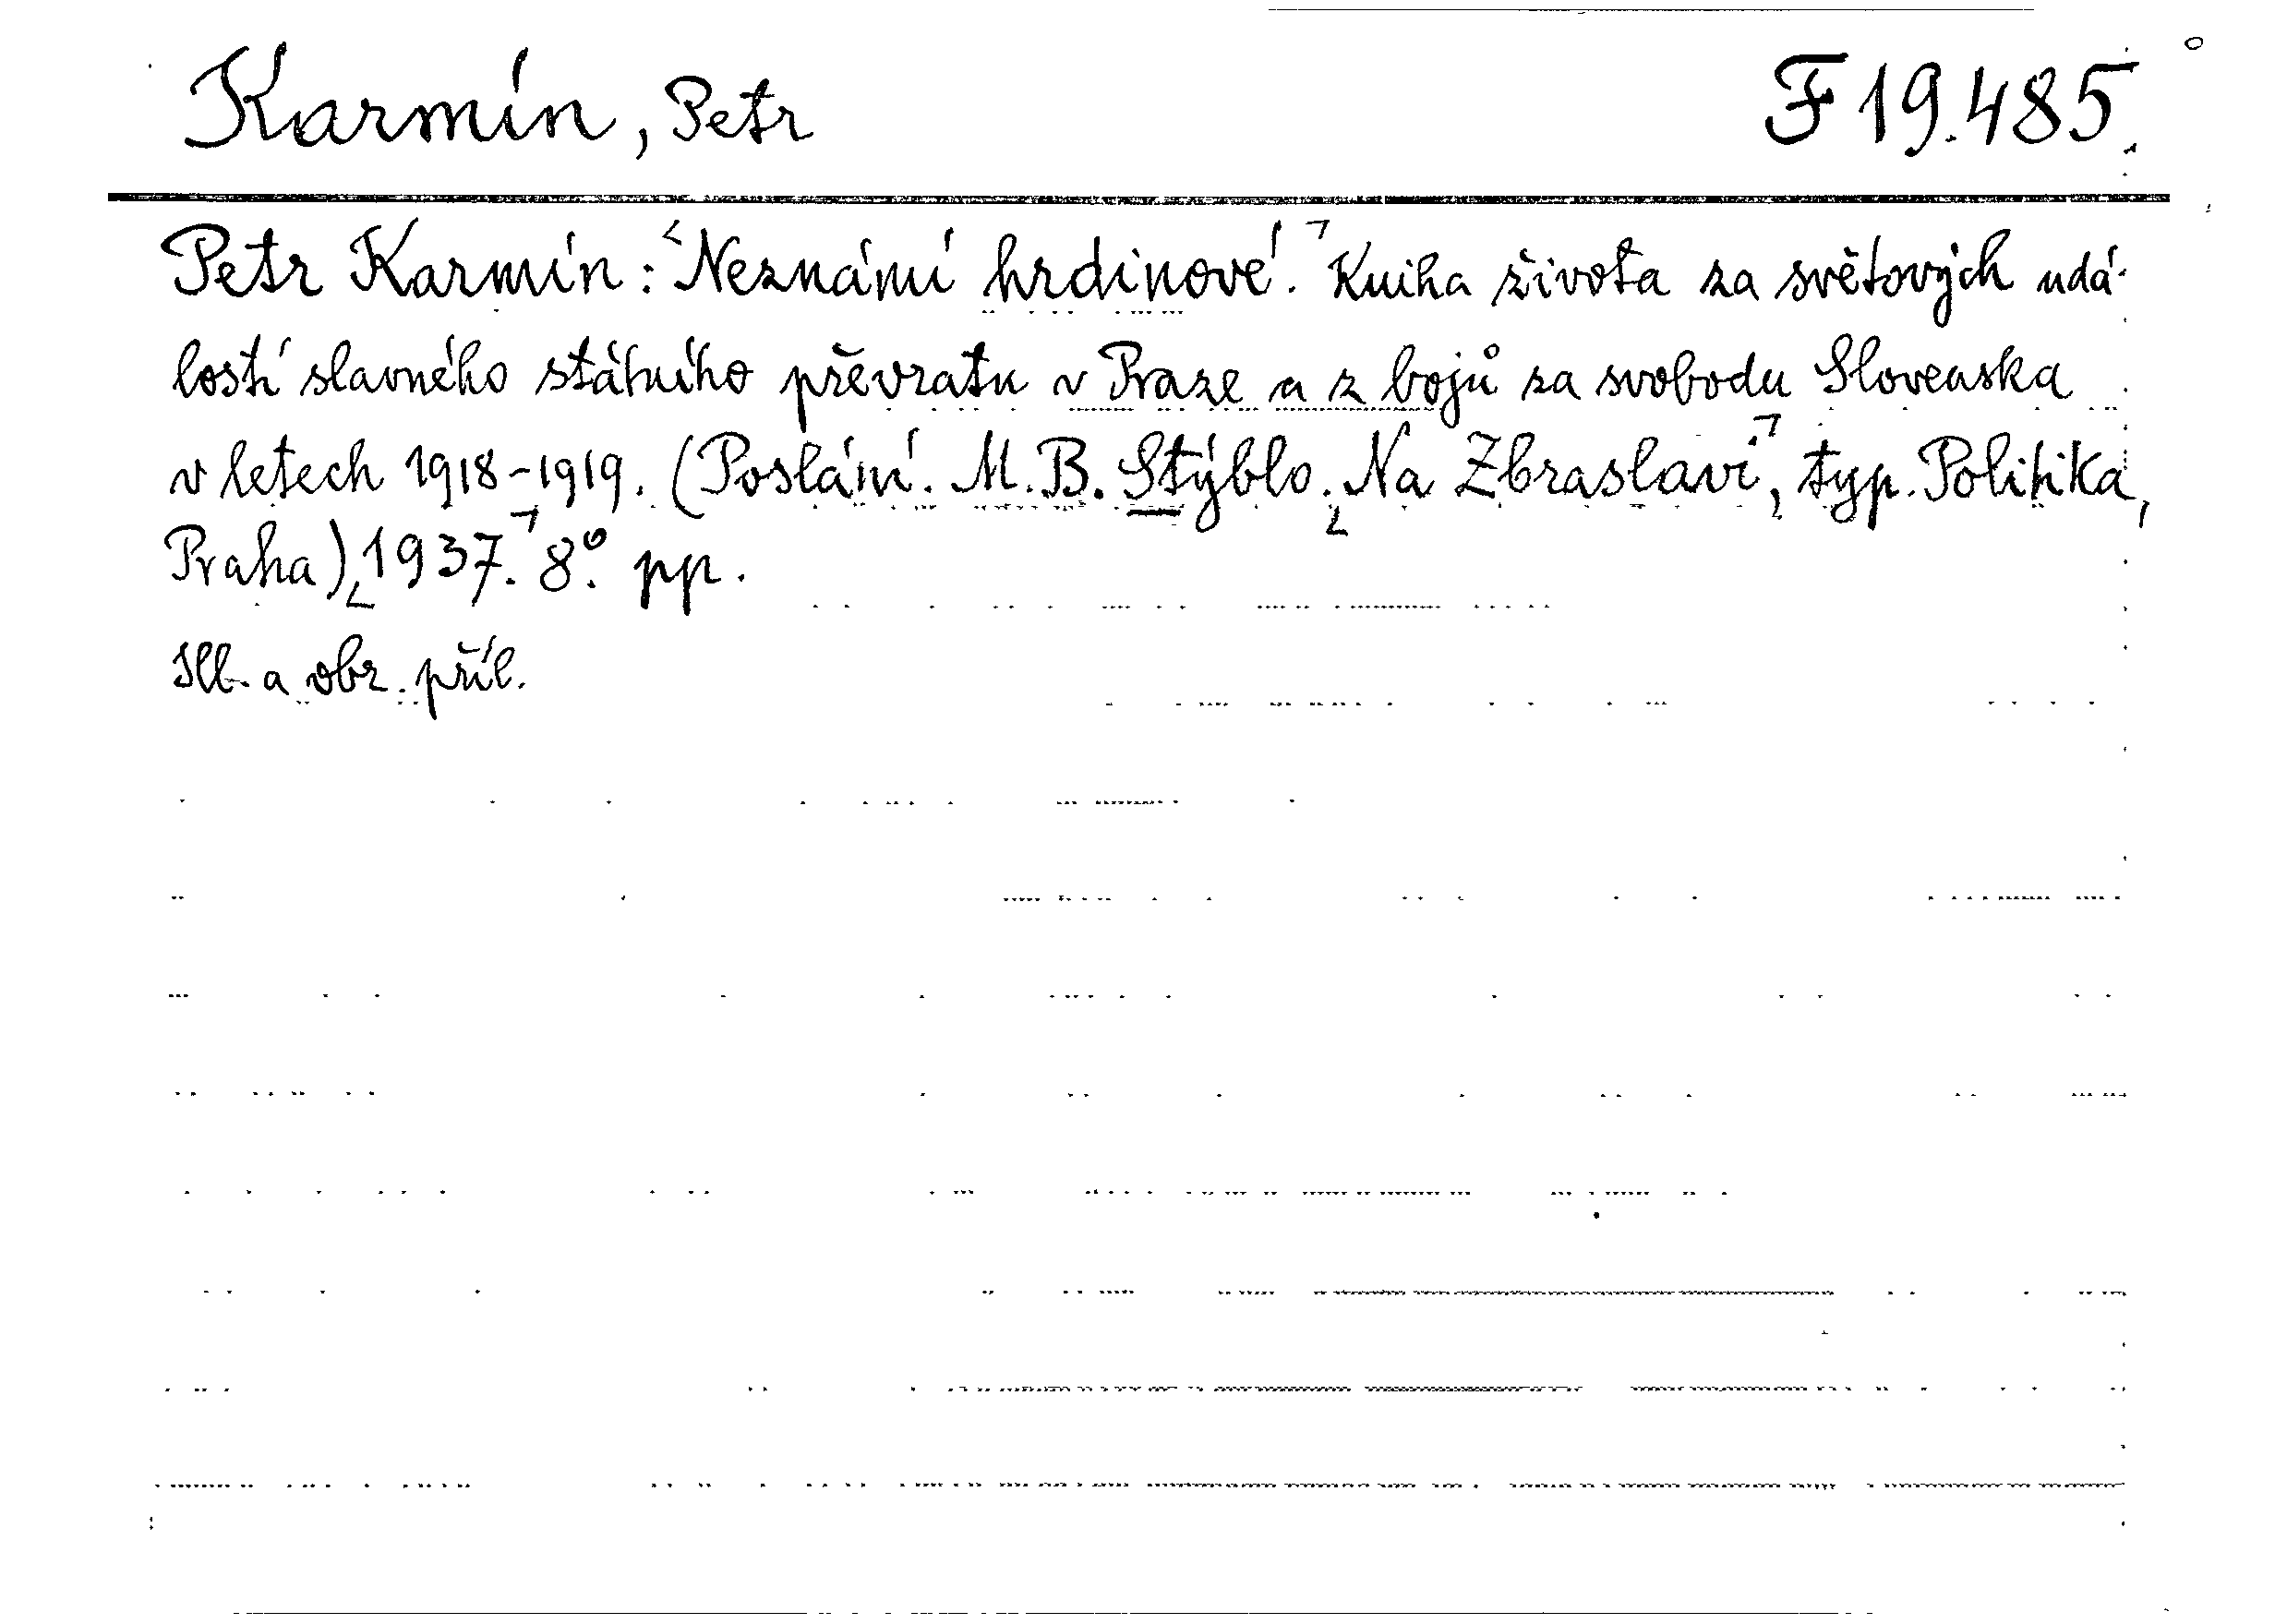 Karmín, Petr F 19.485.
Petr Karmín: Neznámí hrdinové. Kniha života za světových udá-
lostí slavného státního převratu v Praze a z bojů za svobodu Slovenska
v letech 1918-1919. (Poslání. M. B. Stýblo. Na Zbraslavi, typ. Politika,
Praha), 1937. 8°. pp.
Ill. a obr. příl.